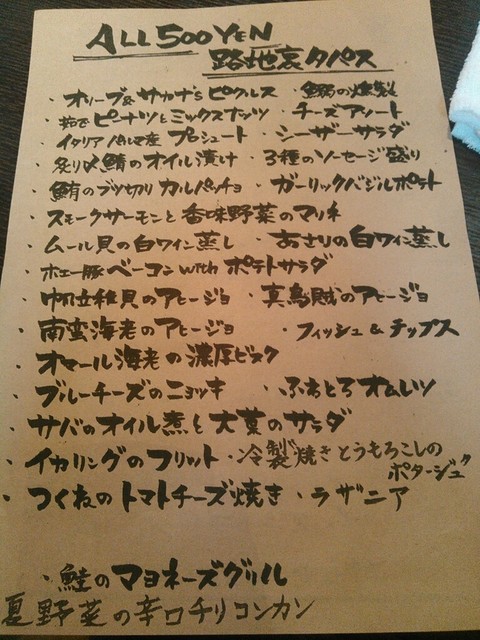 ALL 500 YEN
路地裏タパス
・オリーブ&サカナ'sピクルス ・鰯の燻製
・茹でピーナツとミックスナッツ ・チーズアソート
・イタリアパルマ産プロシュート ・シーザーサラダ
・炙り〆鯖のオイル漬け ・3種のソーセージ盛り
・鮪のブツ切りカルパッチョ ・ガーリックバジルポテト
・スモークサーモンと香味野菜のマリネ
・ムール貝の白ワイン蒸し ・あさりの白ワイン蒸し
・ホエー豚ベーコン with ポテトサラダ
・帆立稚貝のアヒージョ ・真烏賊のアヒージョ
・南蛮海老のアヒージョ ・フィッシュ&チップス
・オマール海老の濃厚ビスク
・ブルーチーズのニョッキ ・ふわとろオムレツ
・サバのオイル煮と大葉のサラダ
・イカリングのフリット ・冷製焼きとうもろこしの
ポタージュ
・つくねのトマトチーズ焼き ・ラザニア
・鮭のマヨネーズグリル
夏野菜の辛口チリコンカン